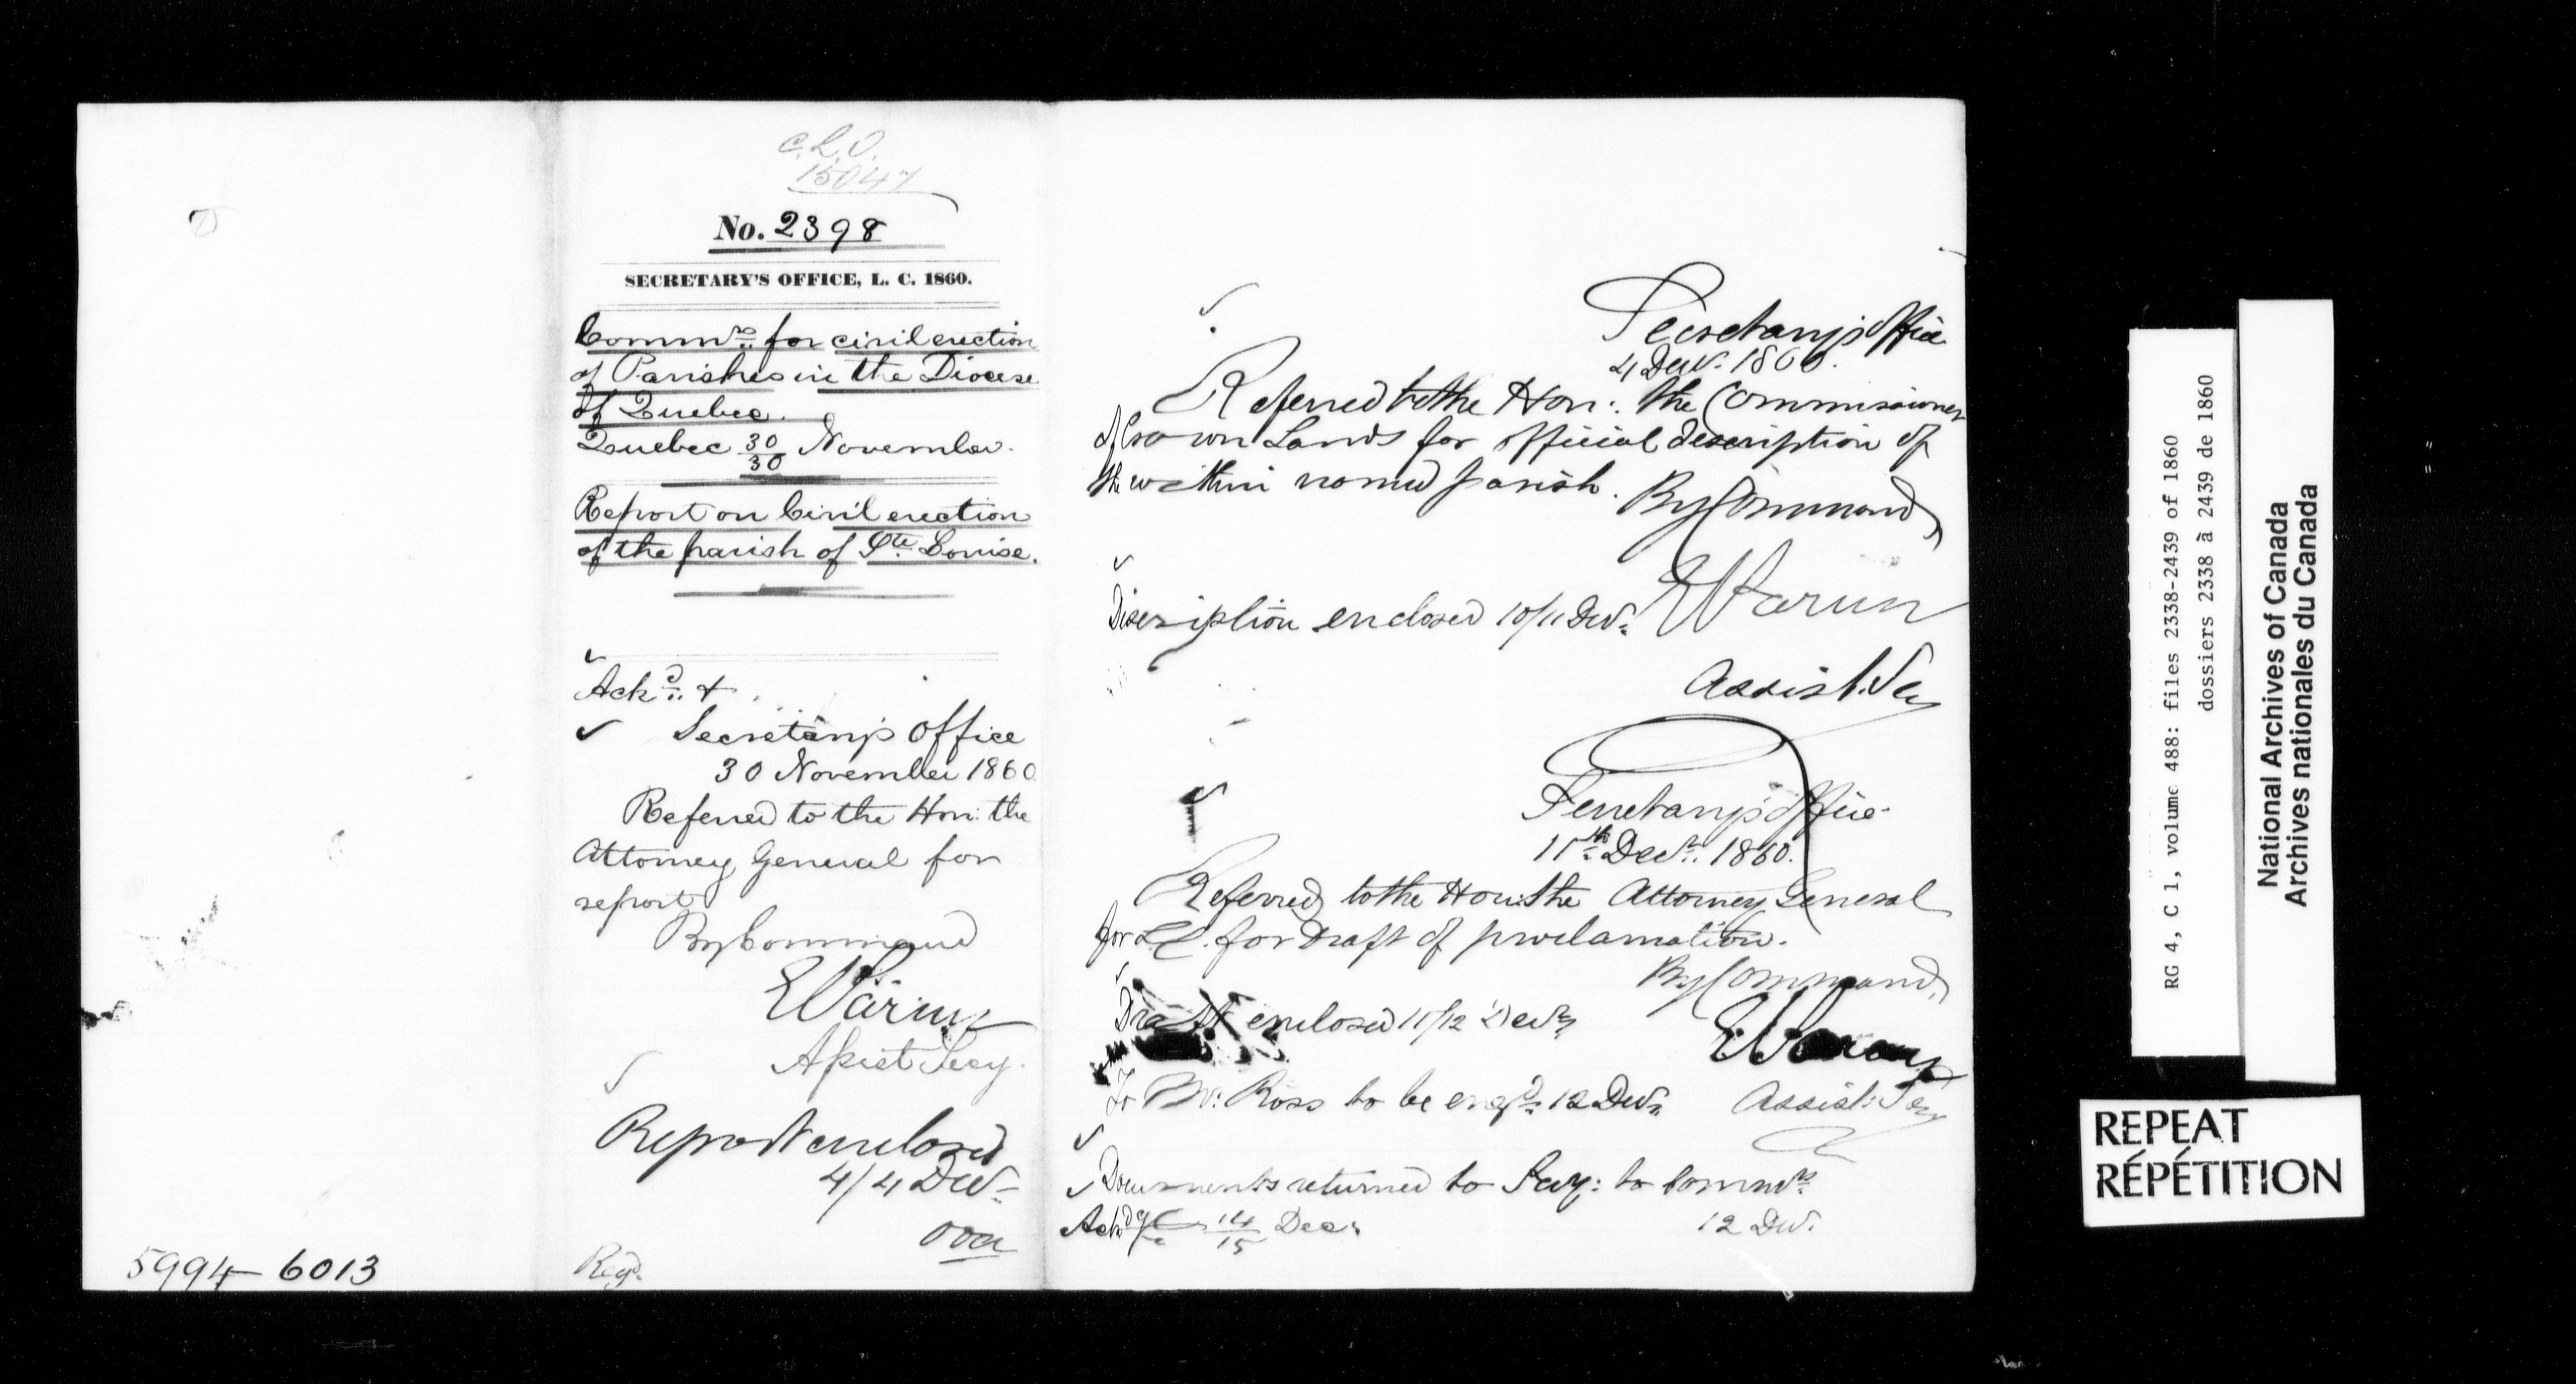 C.L.O.
15047
No. 2398
SECRETARY'S OFFICE, L. C. 1860.
Commrs. for civil erection
of Parishes in the Diocese
of Quebec.
Quebec 30/30 November.
Report on Civil erection
of the parish of Ste. Louise.
Ackd. &
Secretary's Office
30 November 1860
Referred to the Hon: the
Attorney General for
report
By Command
E Parent
Assist Secy.
Report enclosed
4/4 Decr.
over
Regd.
5994-6013
Secretary's Office
4 Decr. 1860.
Referred to the Hon: the Commissioner
of Crown Lands for official description of
the within named parish.
By Command,
Discription enclosed 10/11 Decr.
E Parent
Assist. Secy
Secretary's Office
11th. Decr. 1860.
Referred to the Hon: the Attorney General
for L.C. for Draft of proclamation.
By Command,
Draft enclosed 11/12 Decr.
E Parent
To Mr: Ross to be engd. 12 Decr.
Assist: Secy
Documents returned to Secy: to Commrs.
12 Decr.
Ackd 14/15 Decr
RG 4, C 1, volume 488: files 2338-2439 of 1860
dossiers 2338 à 2439 de 1860
National Archives of Canada
Archives nationales du Canada
REPEAT
RÉPÉTITION